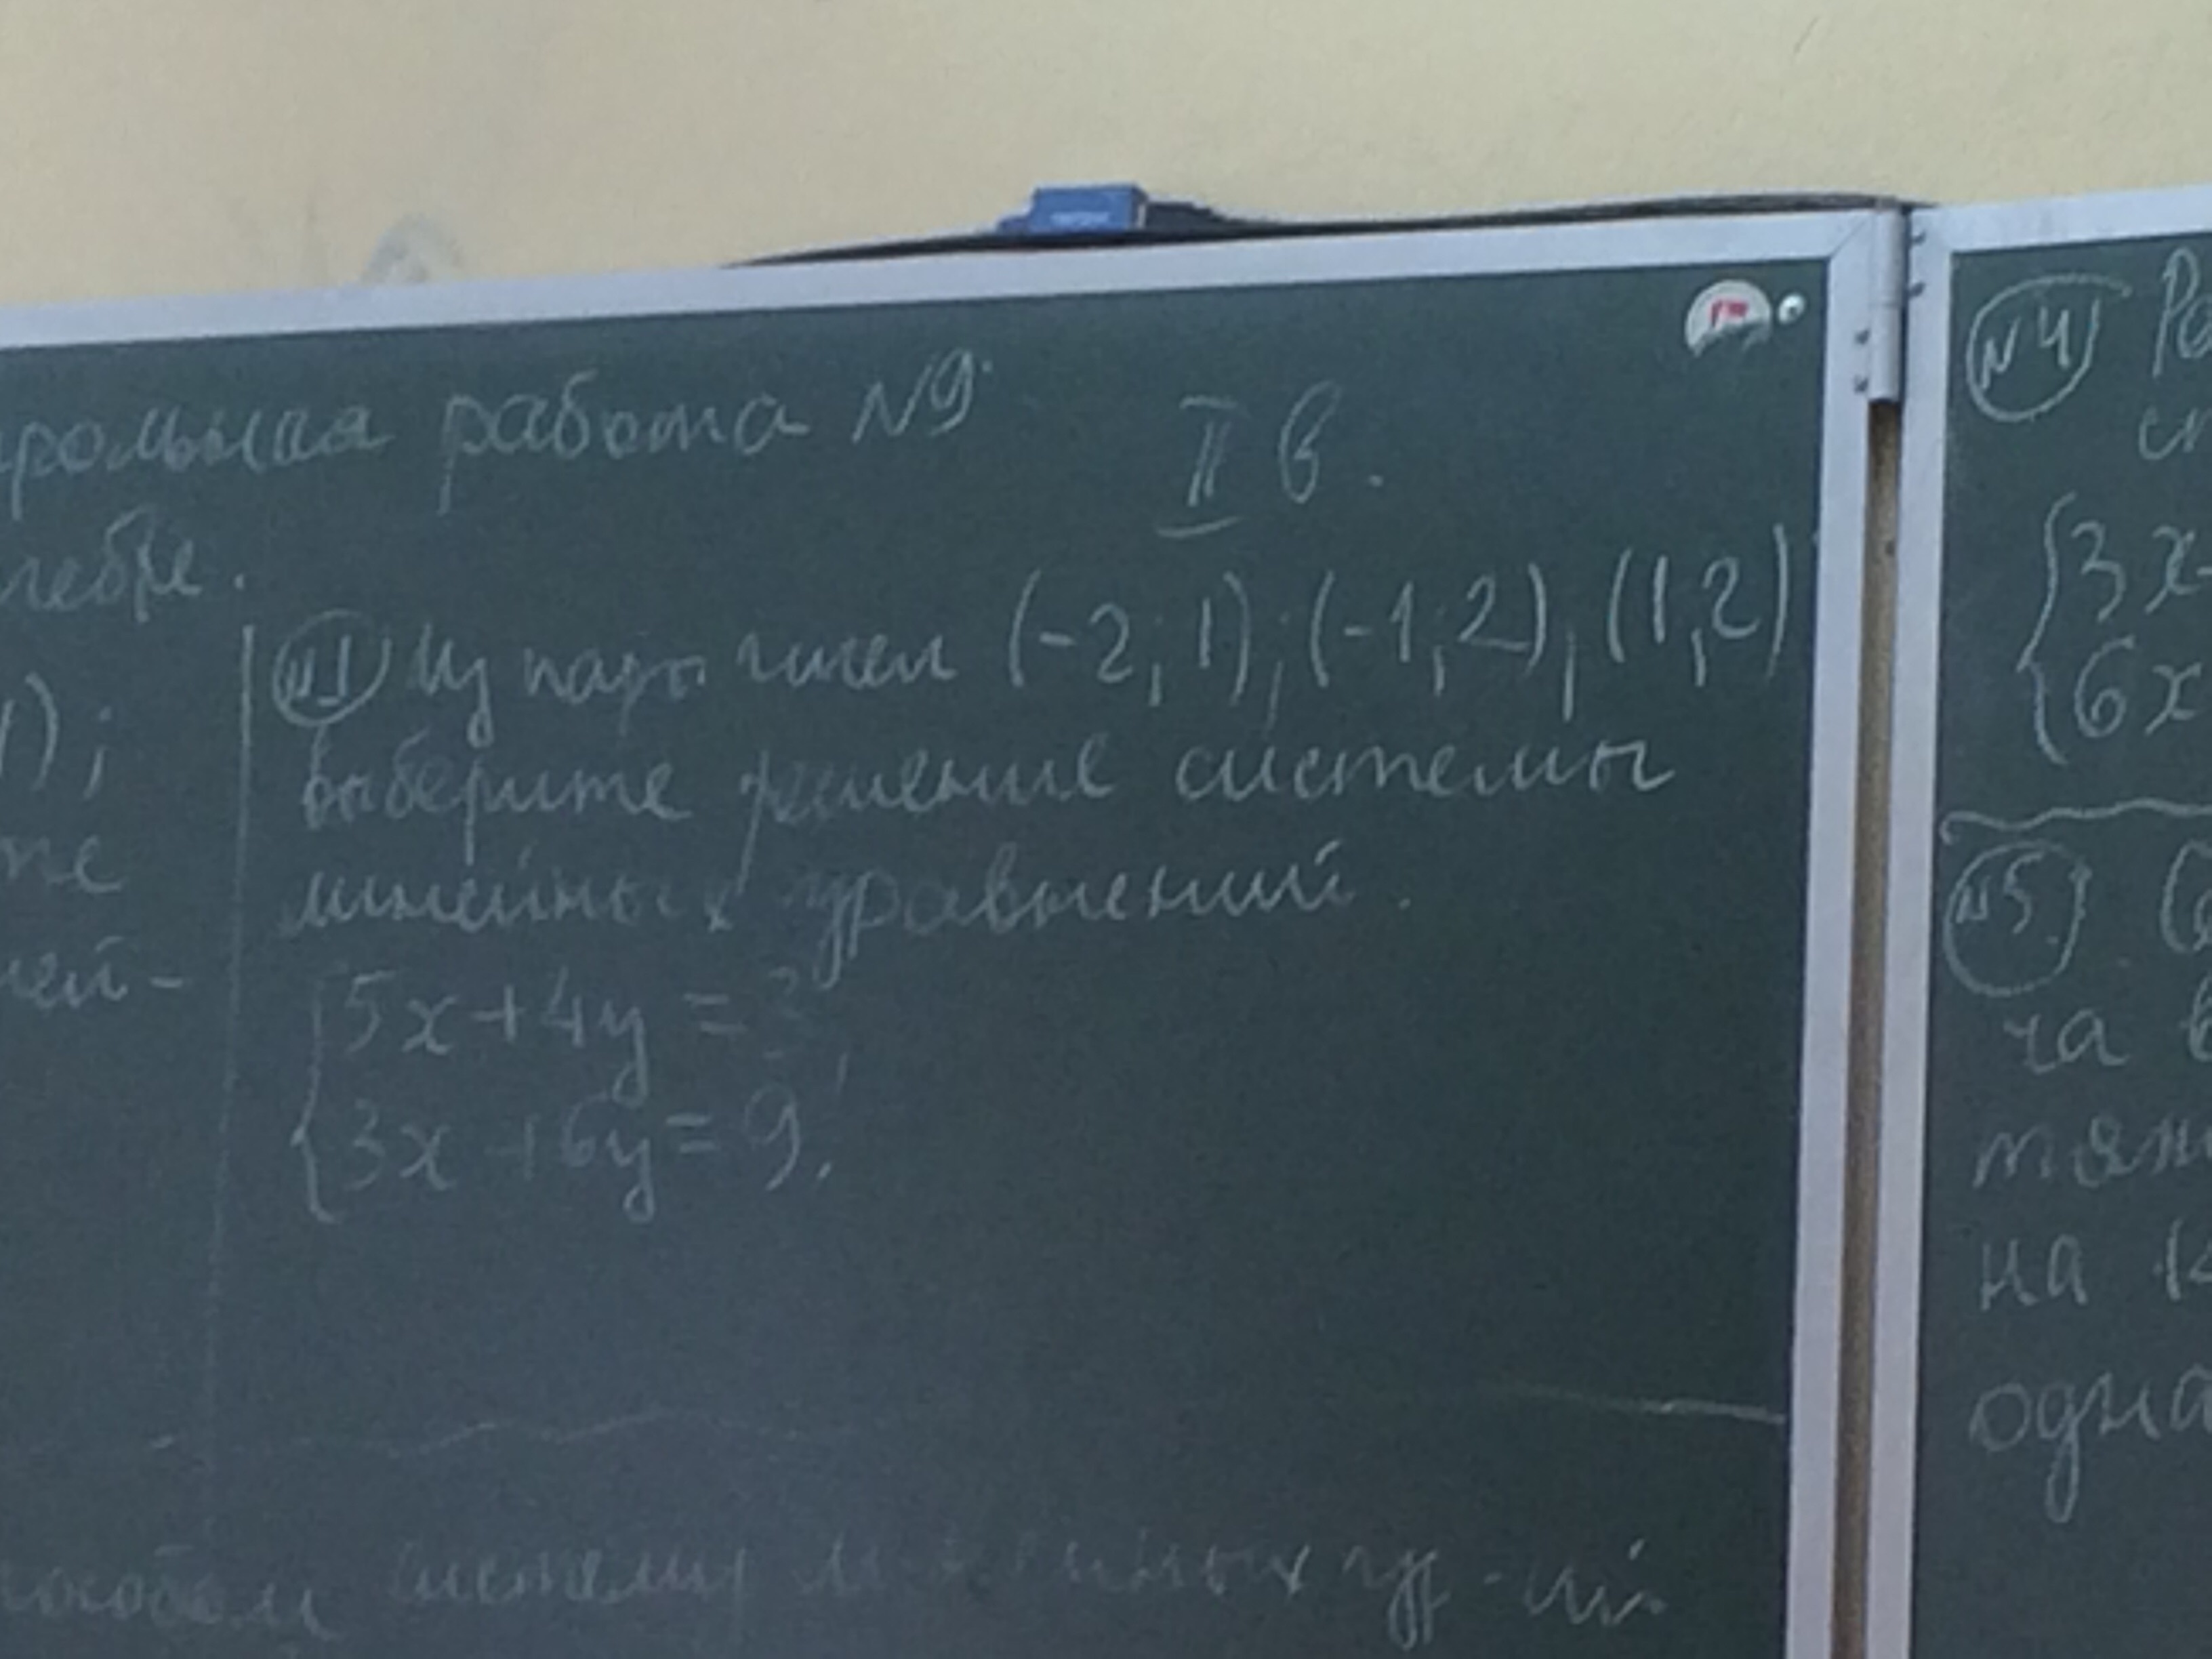 рольная работа №9.
II в.
лгебре.
№1 Из пары чисел (-2; 1); (-1; 2), (1, 2)
выберите решение системы
линейных уравнений.
5x+4y = 3,
3x+6y = 9.
1);
те
ней-
собом систему линейных ур-ий.
№4 Ре
3x-
6x
№5
ча в
тян
на к
одна